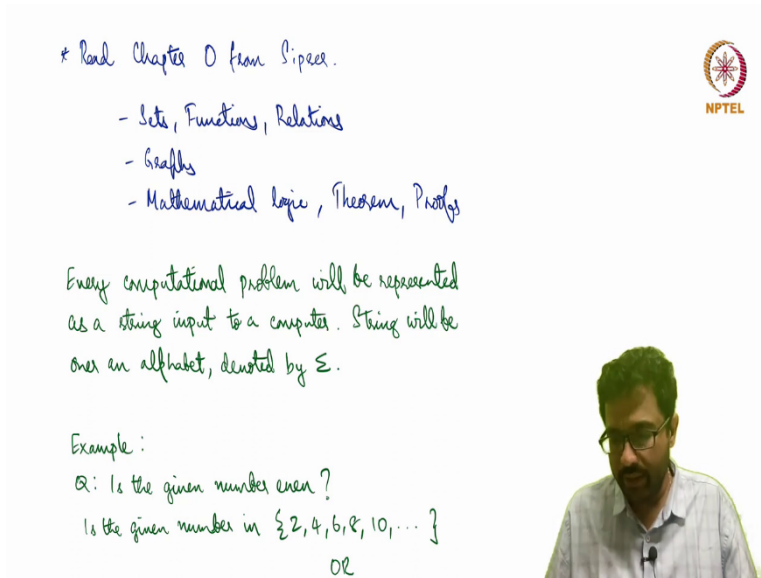 * Read Chapter 0 from Sipser.
NPTEL
- Sets, Functions, Relations
- Graphs
- Mathematical logic, Theorem, Proofs
Every computational problem will be represented
as a string input to a computer. String will be
over an alphabet, denoted by Σ.
Example:
Q: Is the given number even?
Is the given number in {2, 4, 6, 8, 10, ... }
OR